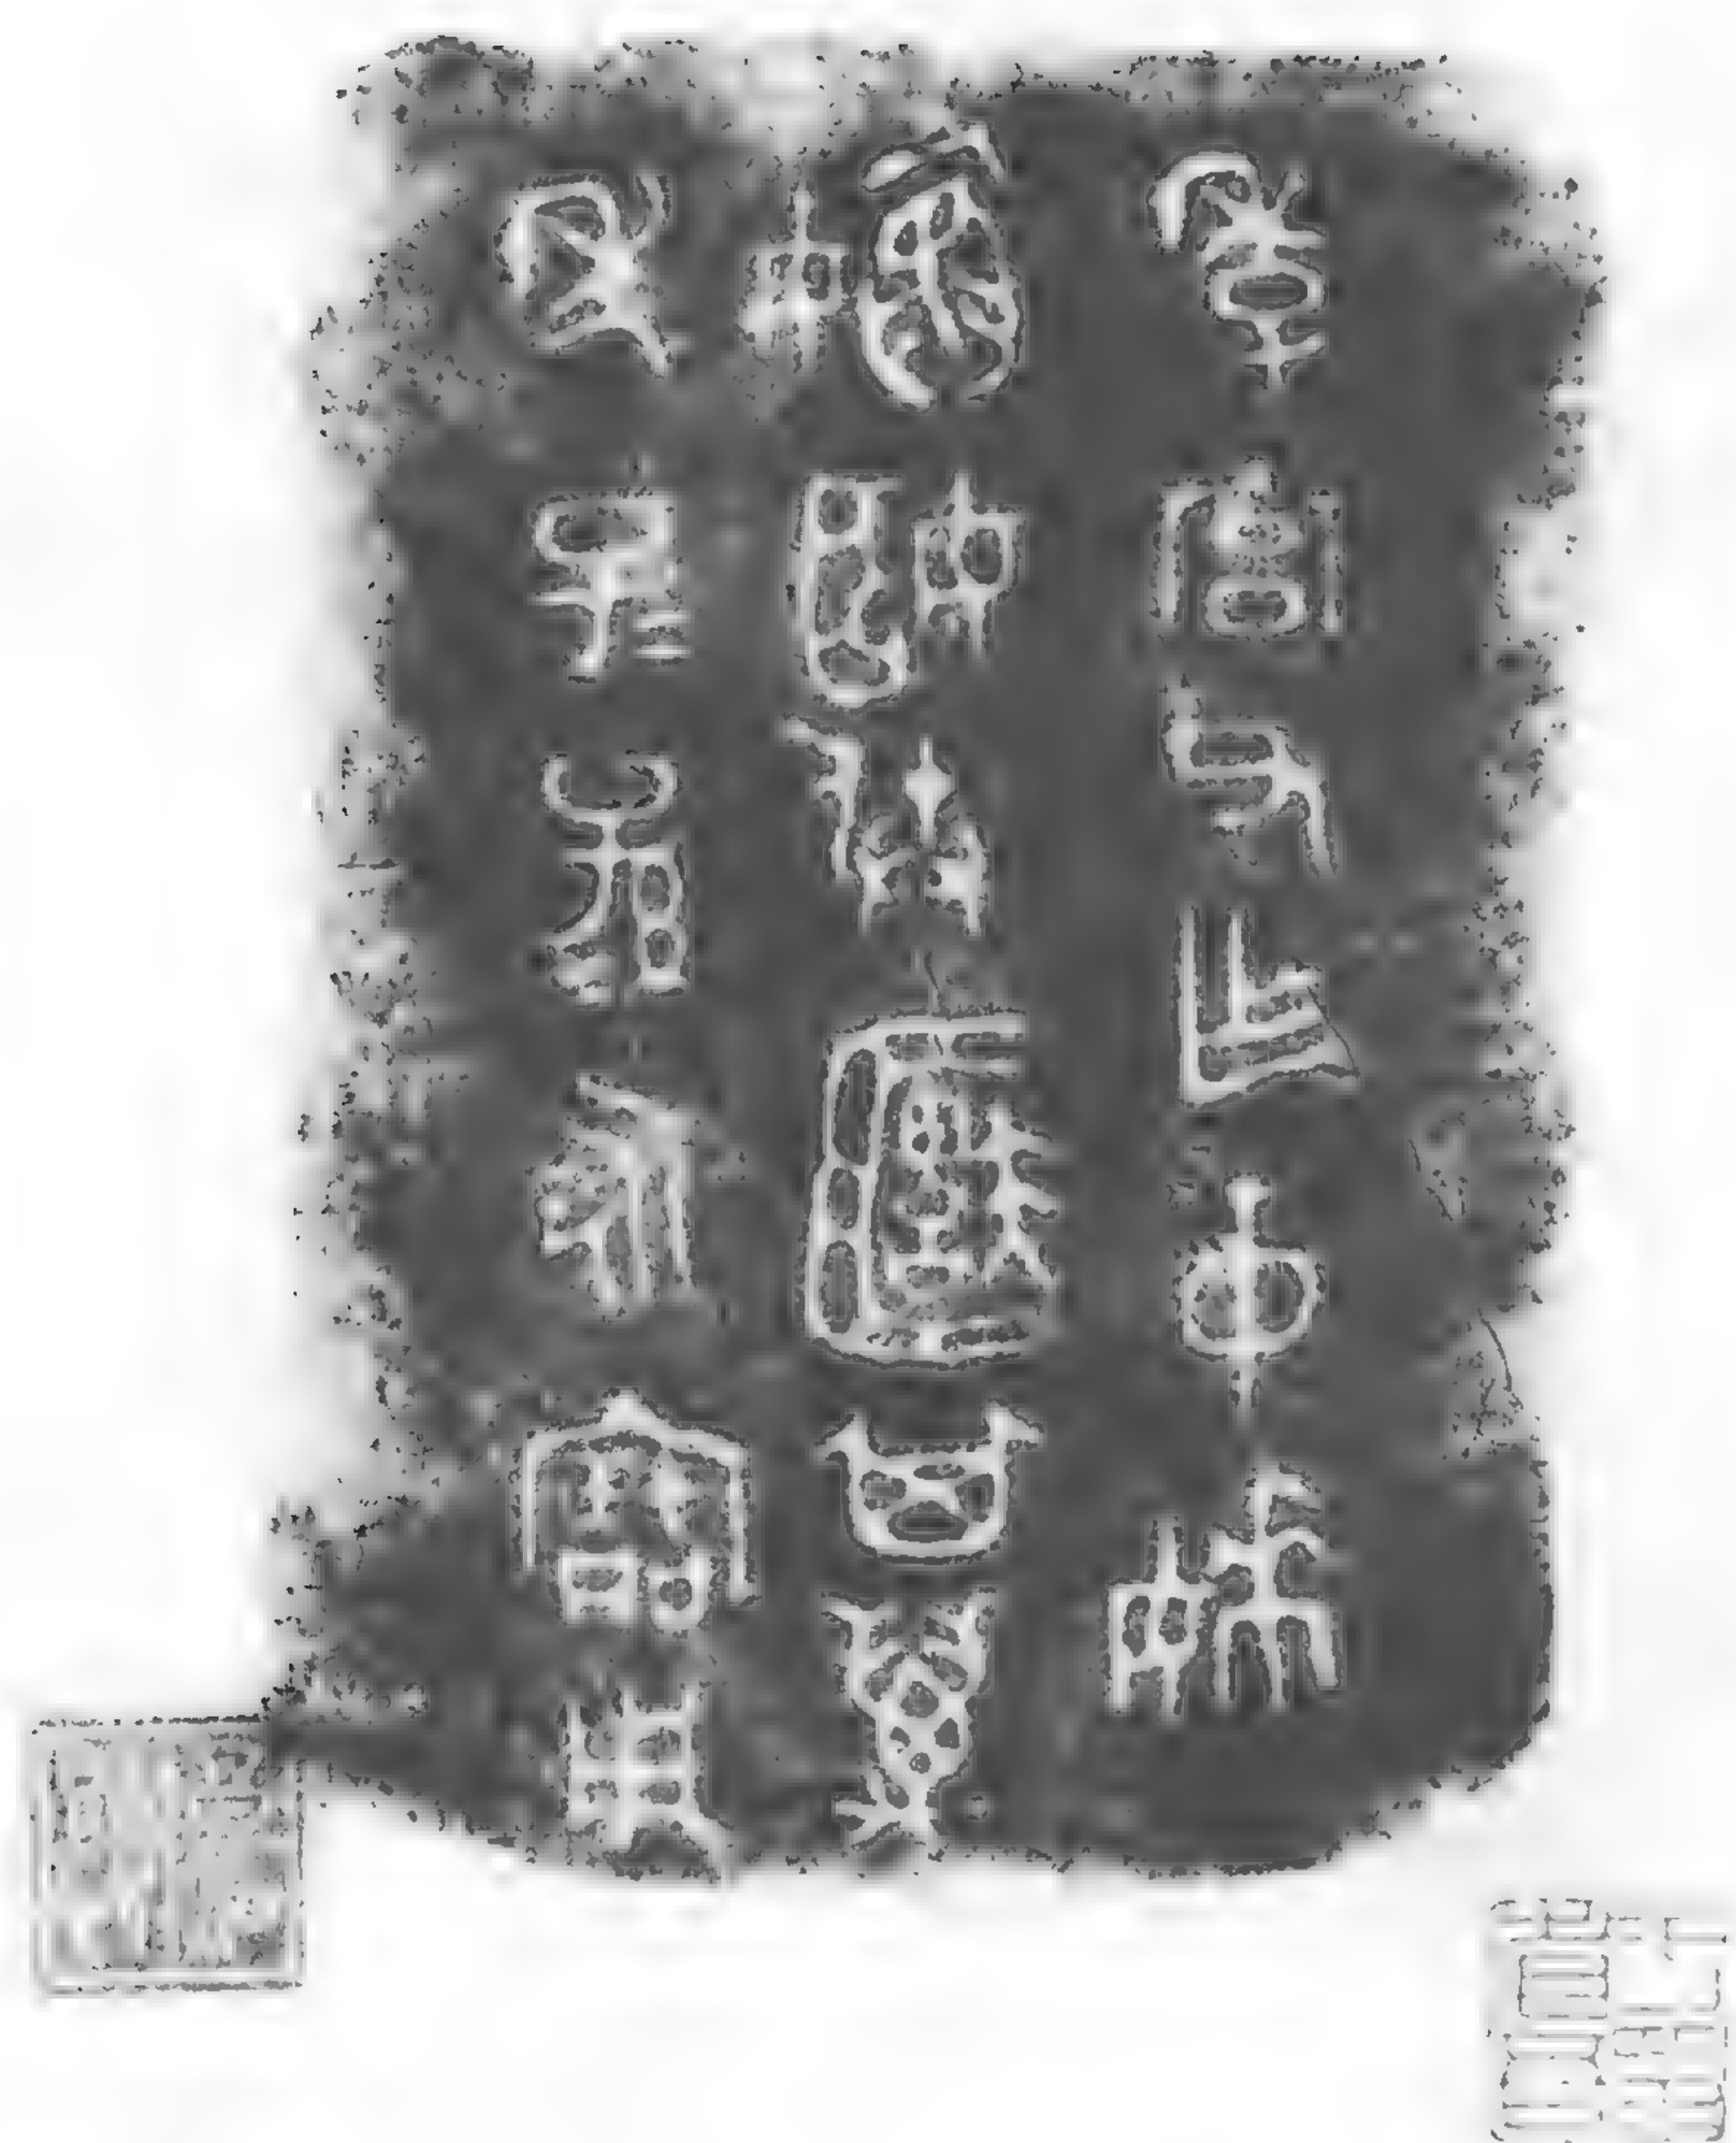 季宫父乍中姊
㜏姬朕其萬
年子=孫永寶用